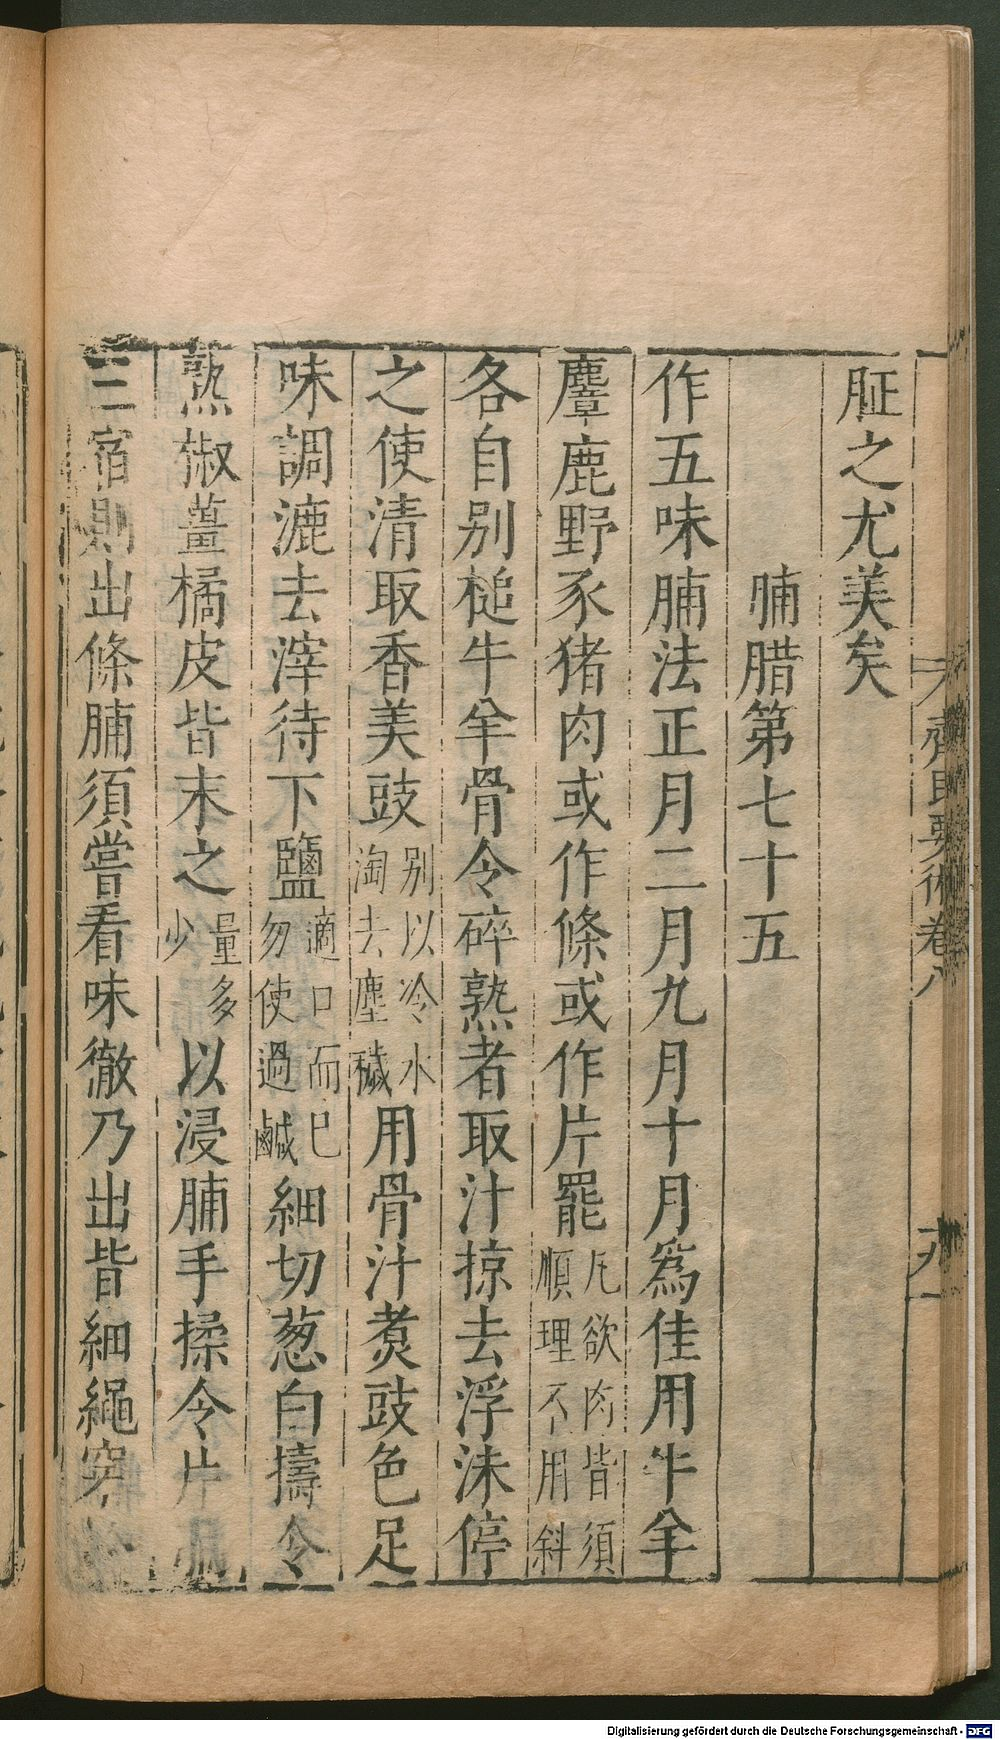 鉦之尤美矣
脯腊第七十五
作五味脯法正月二月九月十月爲佳用牛羊
麞鹿野豕猪肉或作條或作片罷凢欲肉皆須順理不用斜
各自别槌牛羊骨令碎熟者取汁掠去浮沫停
之使清取香美豉别以冷水淘去塵穢用骨汁煑豉色足
味調漉去滓待下鹽適口而已勿使過鹹細切葱白擣令
熟椒薑橘皮皆末之量多少以浸脯手揉令片
三宿則出條脯須嘗看味徹乃出皆細繩穿
齊民要術卷八
Digitalisierung gefördert durch die Deutsche Forschungsgemeinschaft - DFG